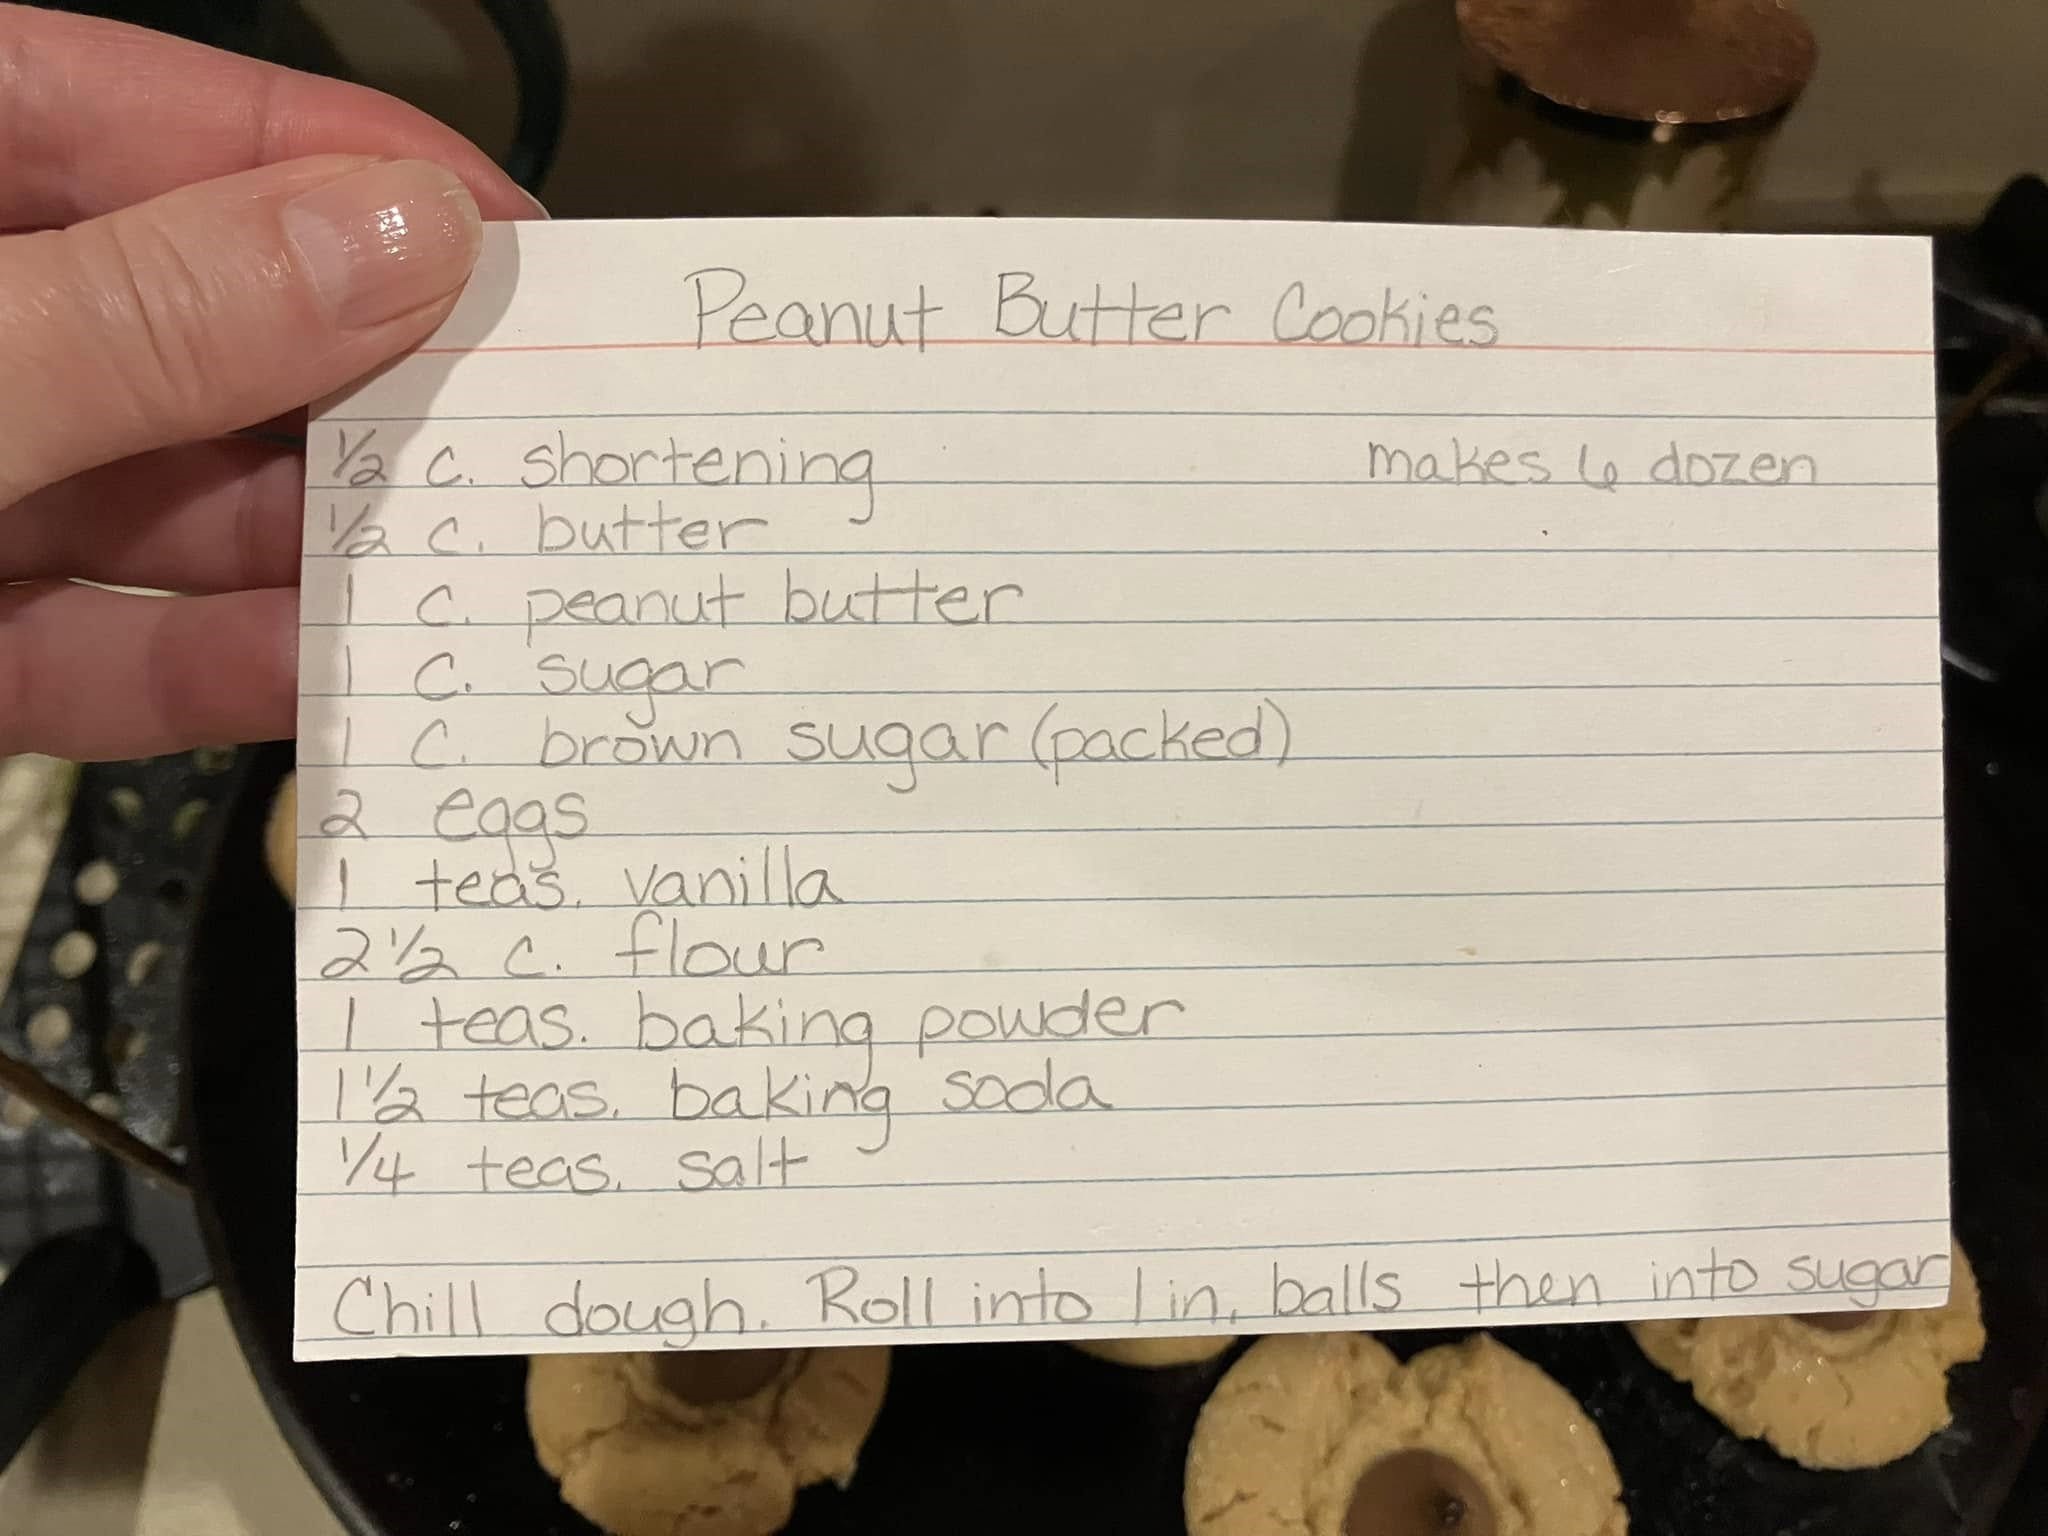 Peanut Butter Cookies
½ c. shortening makes 6 dozen
½ c. butter
1 c. peanut butter
1 c. sugar
1 c. brown sugar (packed)
2 eggs
1 teas. vanilla
2½ c. flour
1 teas. baking powder
1½ teas. baking soda
¼ teas. salt
Chill dough. Roll into 1 in. balls then into sugar